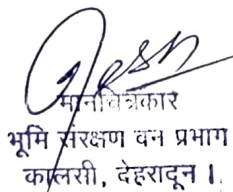 मानचित्रकार
भूमि संरक्षण वन प्रभाग
कालसी, देहरादून ।